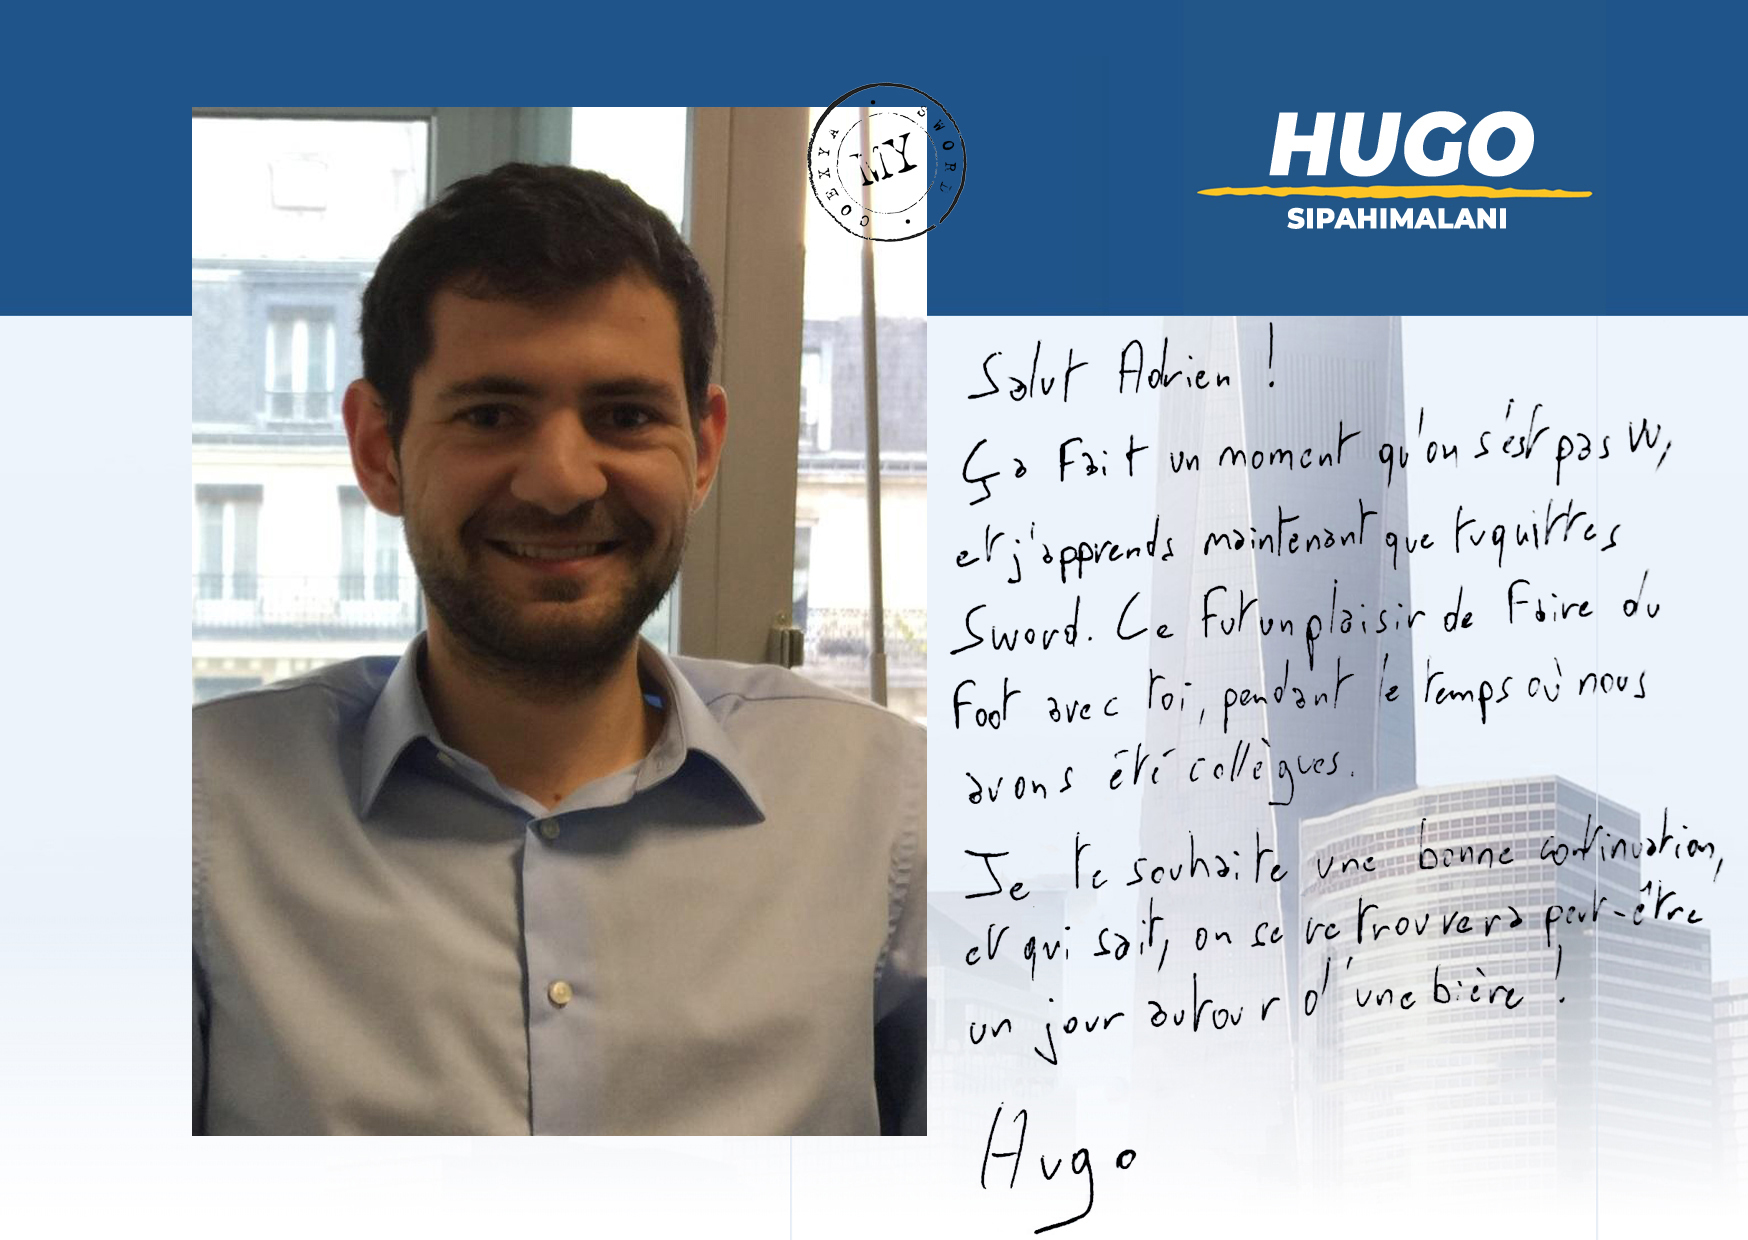 COEXYA • SWORD •
MY
HUGO
SIPAHIMALANI
Salut Adrien !
Ça fait un moment qu'on s'est pas vu,
et j'apprends maintenant que tu quittes
Sword. Ce fut un plaisir de faire du
foot avec toi, pendant le temps où nous
avons été collègues.
Je te souhaite une bonne continuation,
et qui sait, on se retrouvera peut-être
un jour autour d'une bière !
Hugo